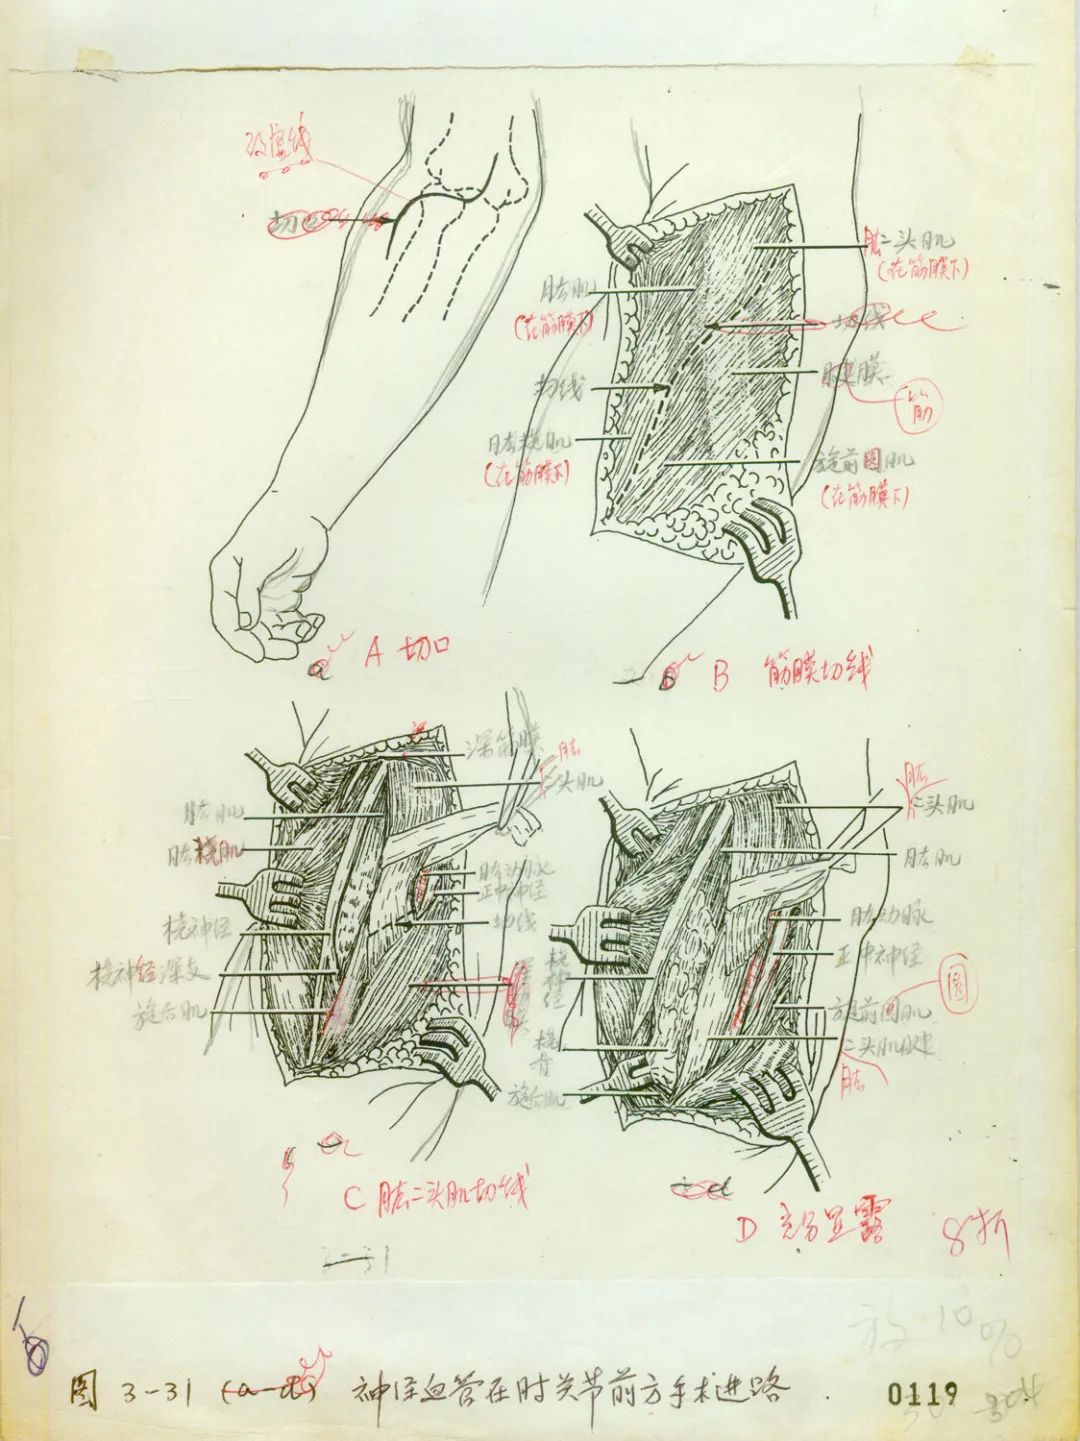 肱二头肌
(在筋膜下)
肱肌
(在筋膜下)
切线
腱膜
筋
切线
肱桡肌
(在筋膜下)
旋前圆肌
(在筋膜下)
a
A 切口
b
B 筋膜切线
深筋膜
肱
二头肌
肱肌
肱桡肌
肱动脉
正中神经
切线
桡神经
桡神经深支
旋后肌
C 肱二头肌切线
肱
二头肌
肱肌
肱动脉
正中神经
圆
旋前圆肌
二头肌腱
肱
桡神经
桡骨
旋后肌
d
D 充分显露
8折
3-31
放10%
图 3-31 (a-d) 神经血管在肘关节前方手术进路
0119